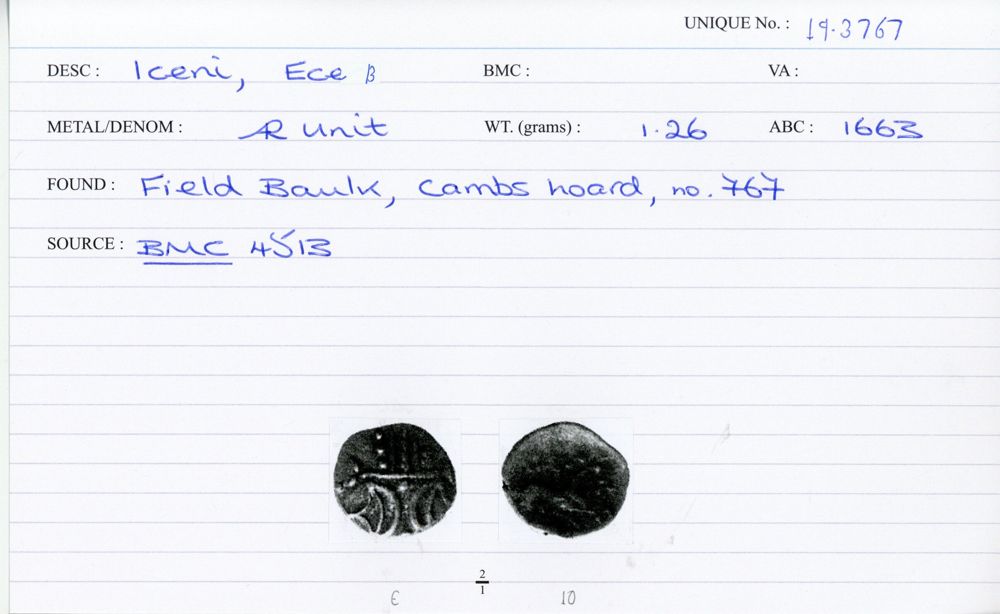 UNIQUE No. : 19.3767
DESC : Iceni, Ece B BMC : VA :
METAL/DENOM : AR Unit WT. (grams) : 1.26 ABC : 1663
FOUND : Field Baulk, Cambs hoard, no. 767
SOURCE : BMC 4513
2
1
E 10